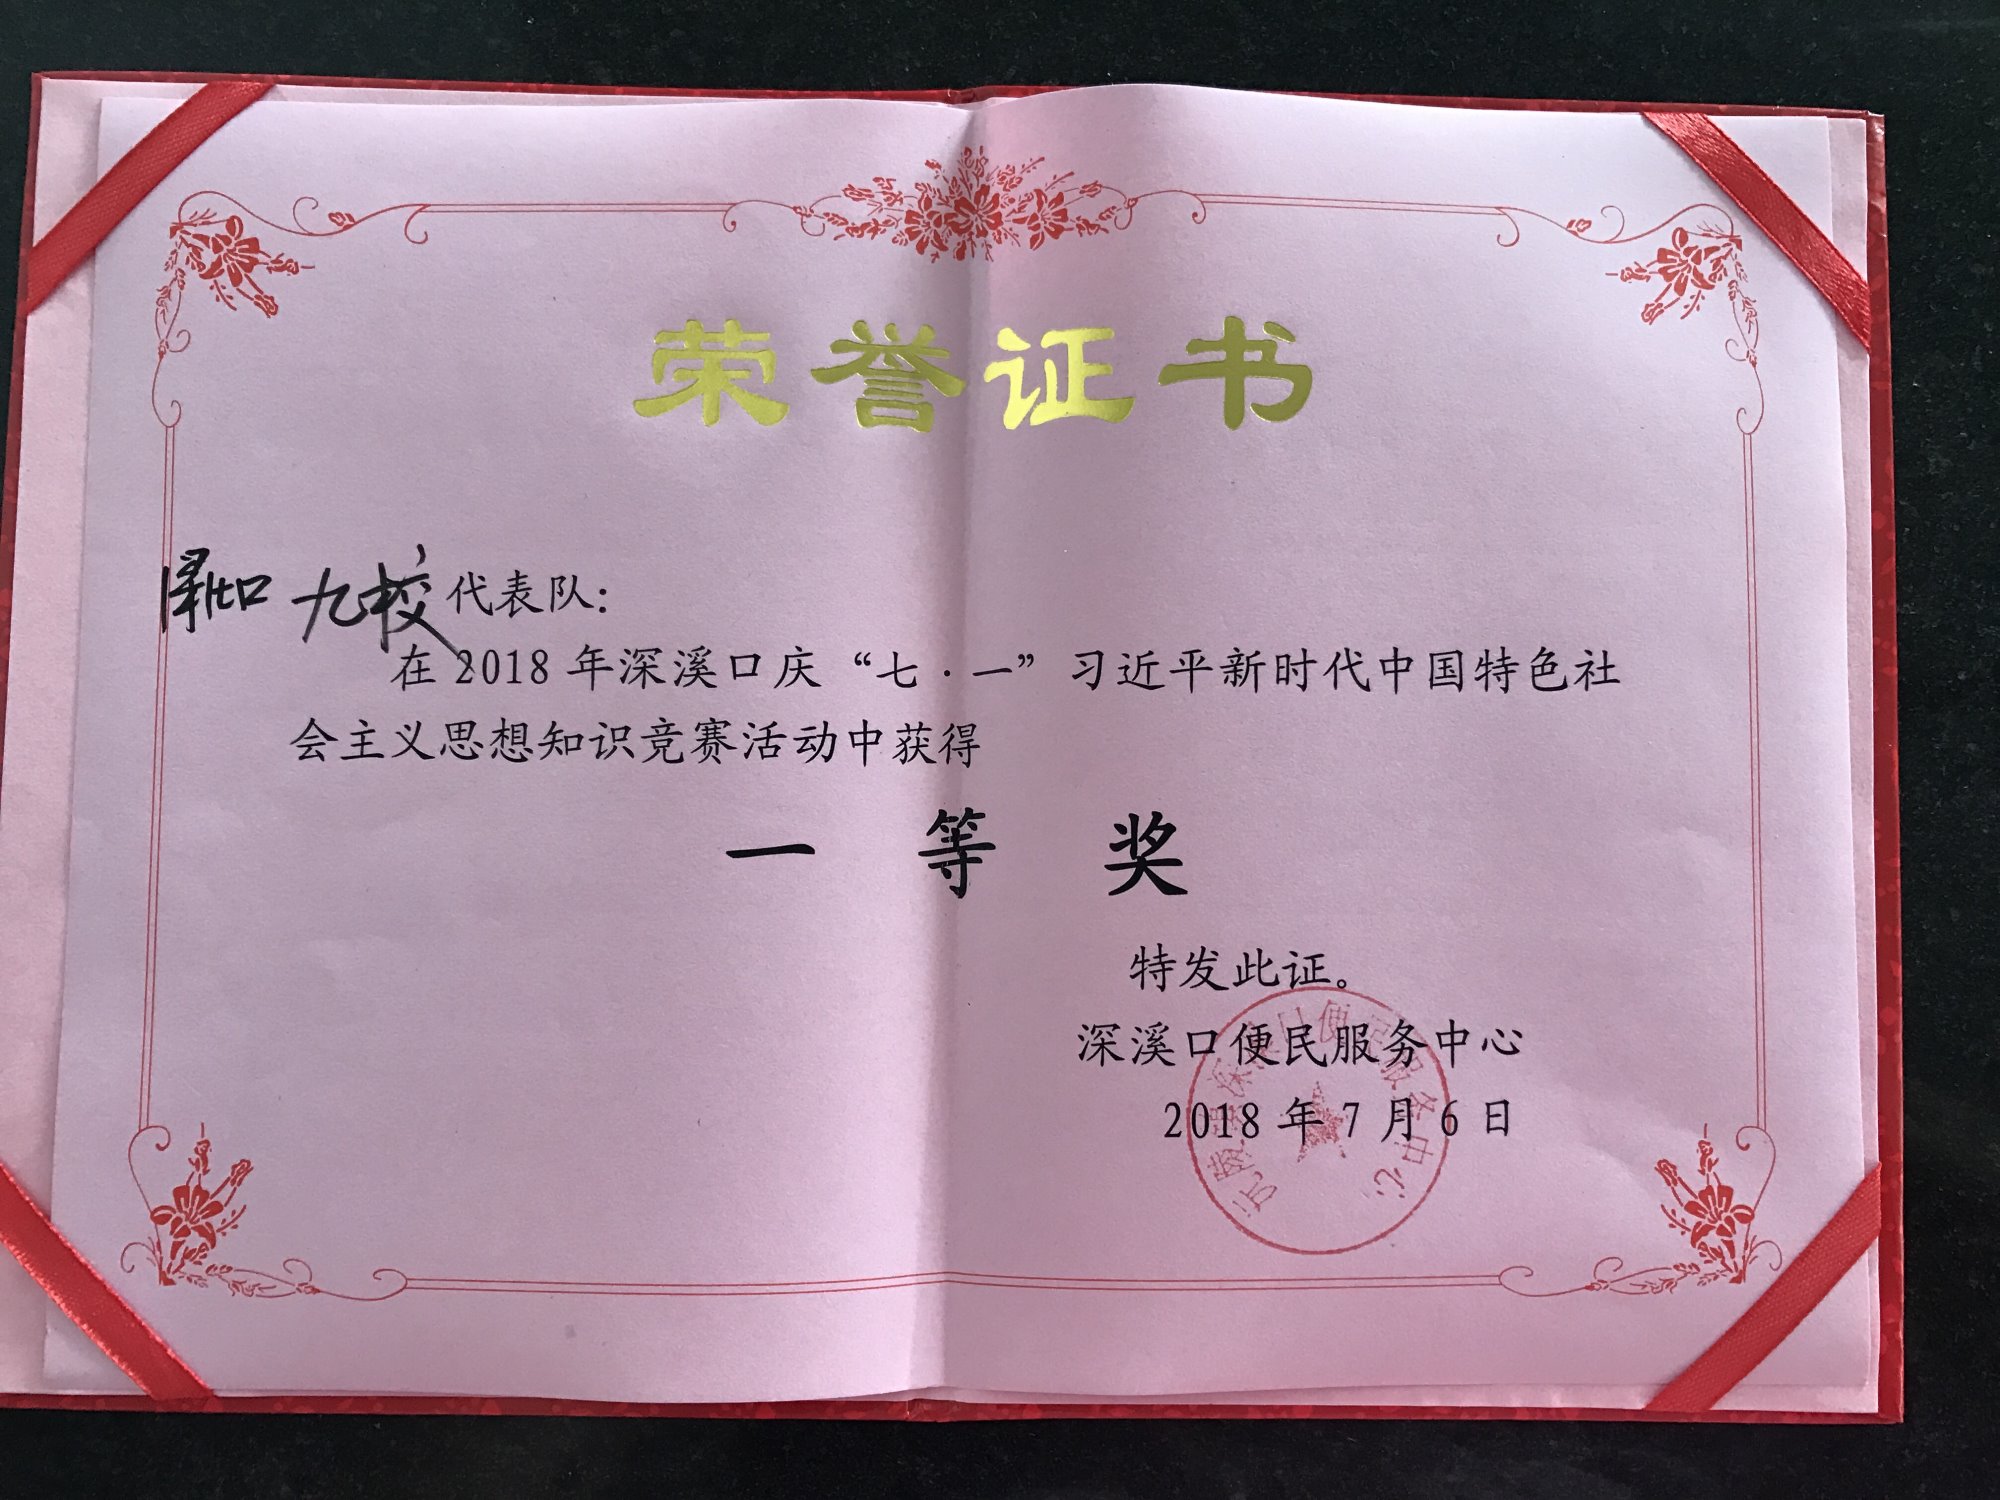 荣誉证书
九校代表队：
在2018年深溪口庆“七·一”习近平新时代中国特色社
会主义思想知识竞赛活动中获得
一等奖
特发此证。
深溪口便民服务中心
2018年7月6日
沅陵县深溪口便民服务中心